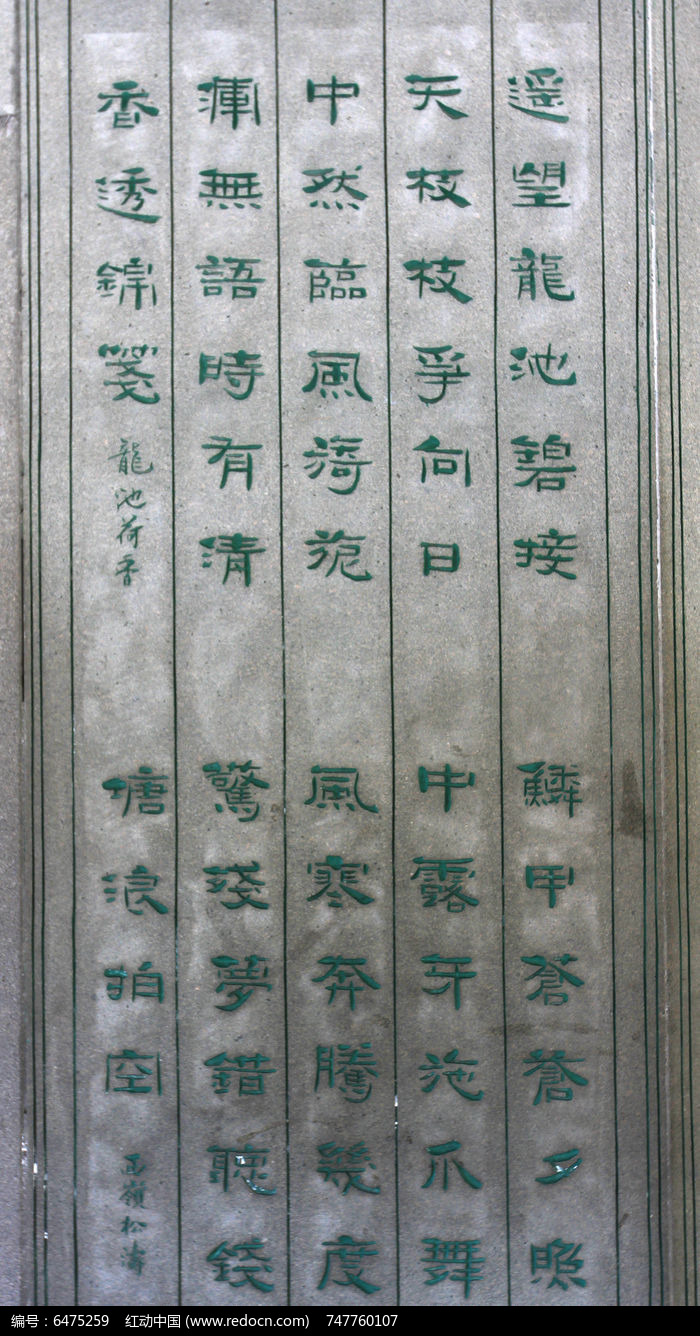 遥望龍池碧接
天枝枝爭向日
中然臨風旖旎
渾無語時有清
香透錦箋 龍池荷香
鱗甲蒼蒼夕照
中露牙施爪舞
風寒奔騰幾度
驚殘夢錯聽錢
塘浪拍空 西嶺松濤
编号：6475259 红动中国 (www.redocn.com) 747760107